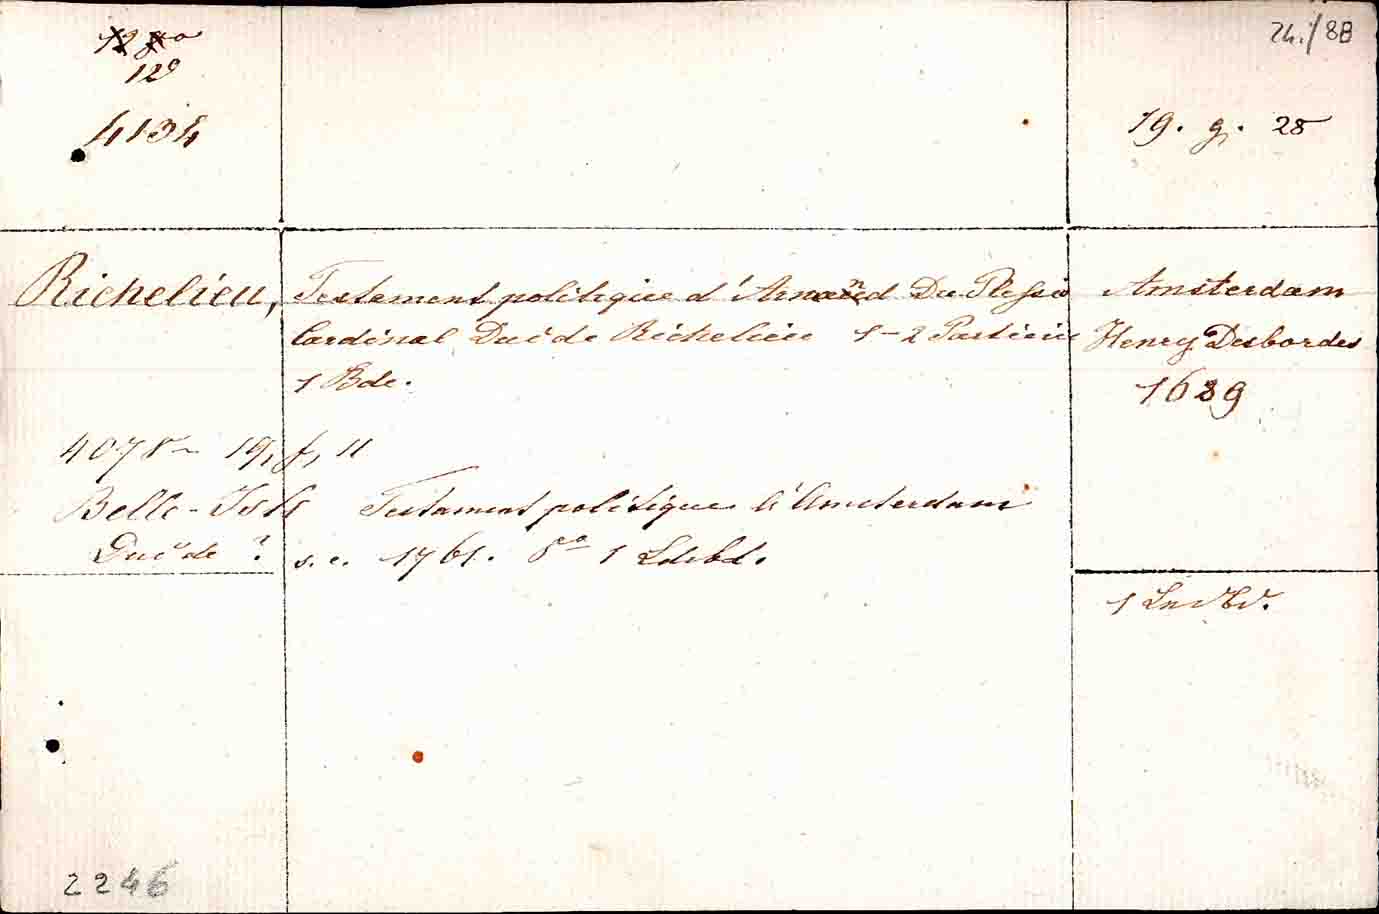 24./88
12°
4134
19. g. 28
Richelieu, Testament politique d'Armand Du Plessis Amsterdam
Cardinal Duc de Richelieu 1-2 Parties Henry Desbordes
1 Bde. 1689
4078 19, f, 11
Belle-Isle Testament politique à Amsterdam
Duc de ? s. e. 1761. 8° 1 Ldrbd.
1 LedBd.
2246